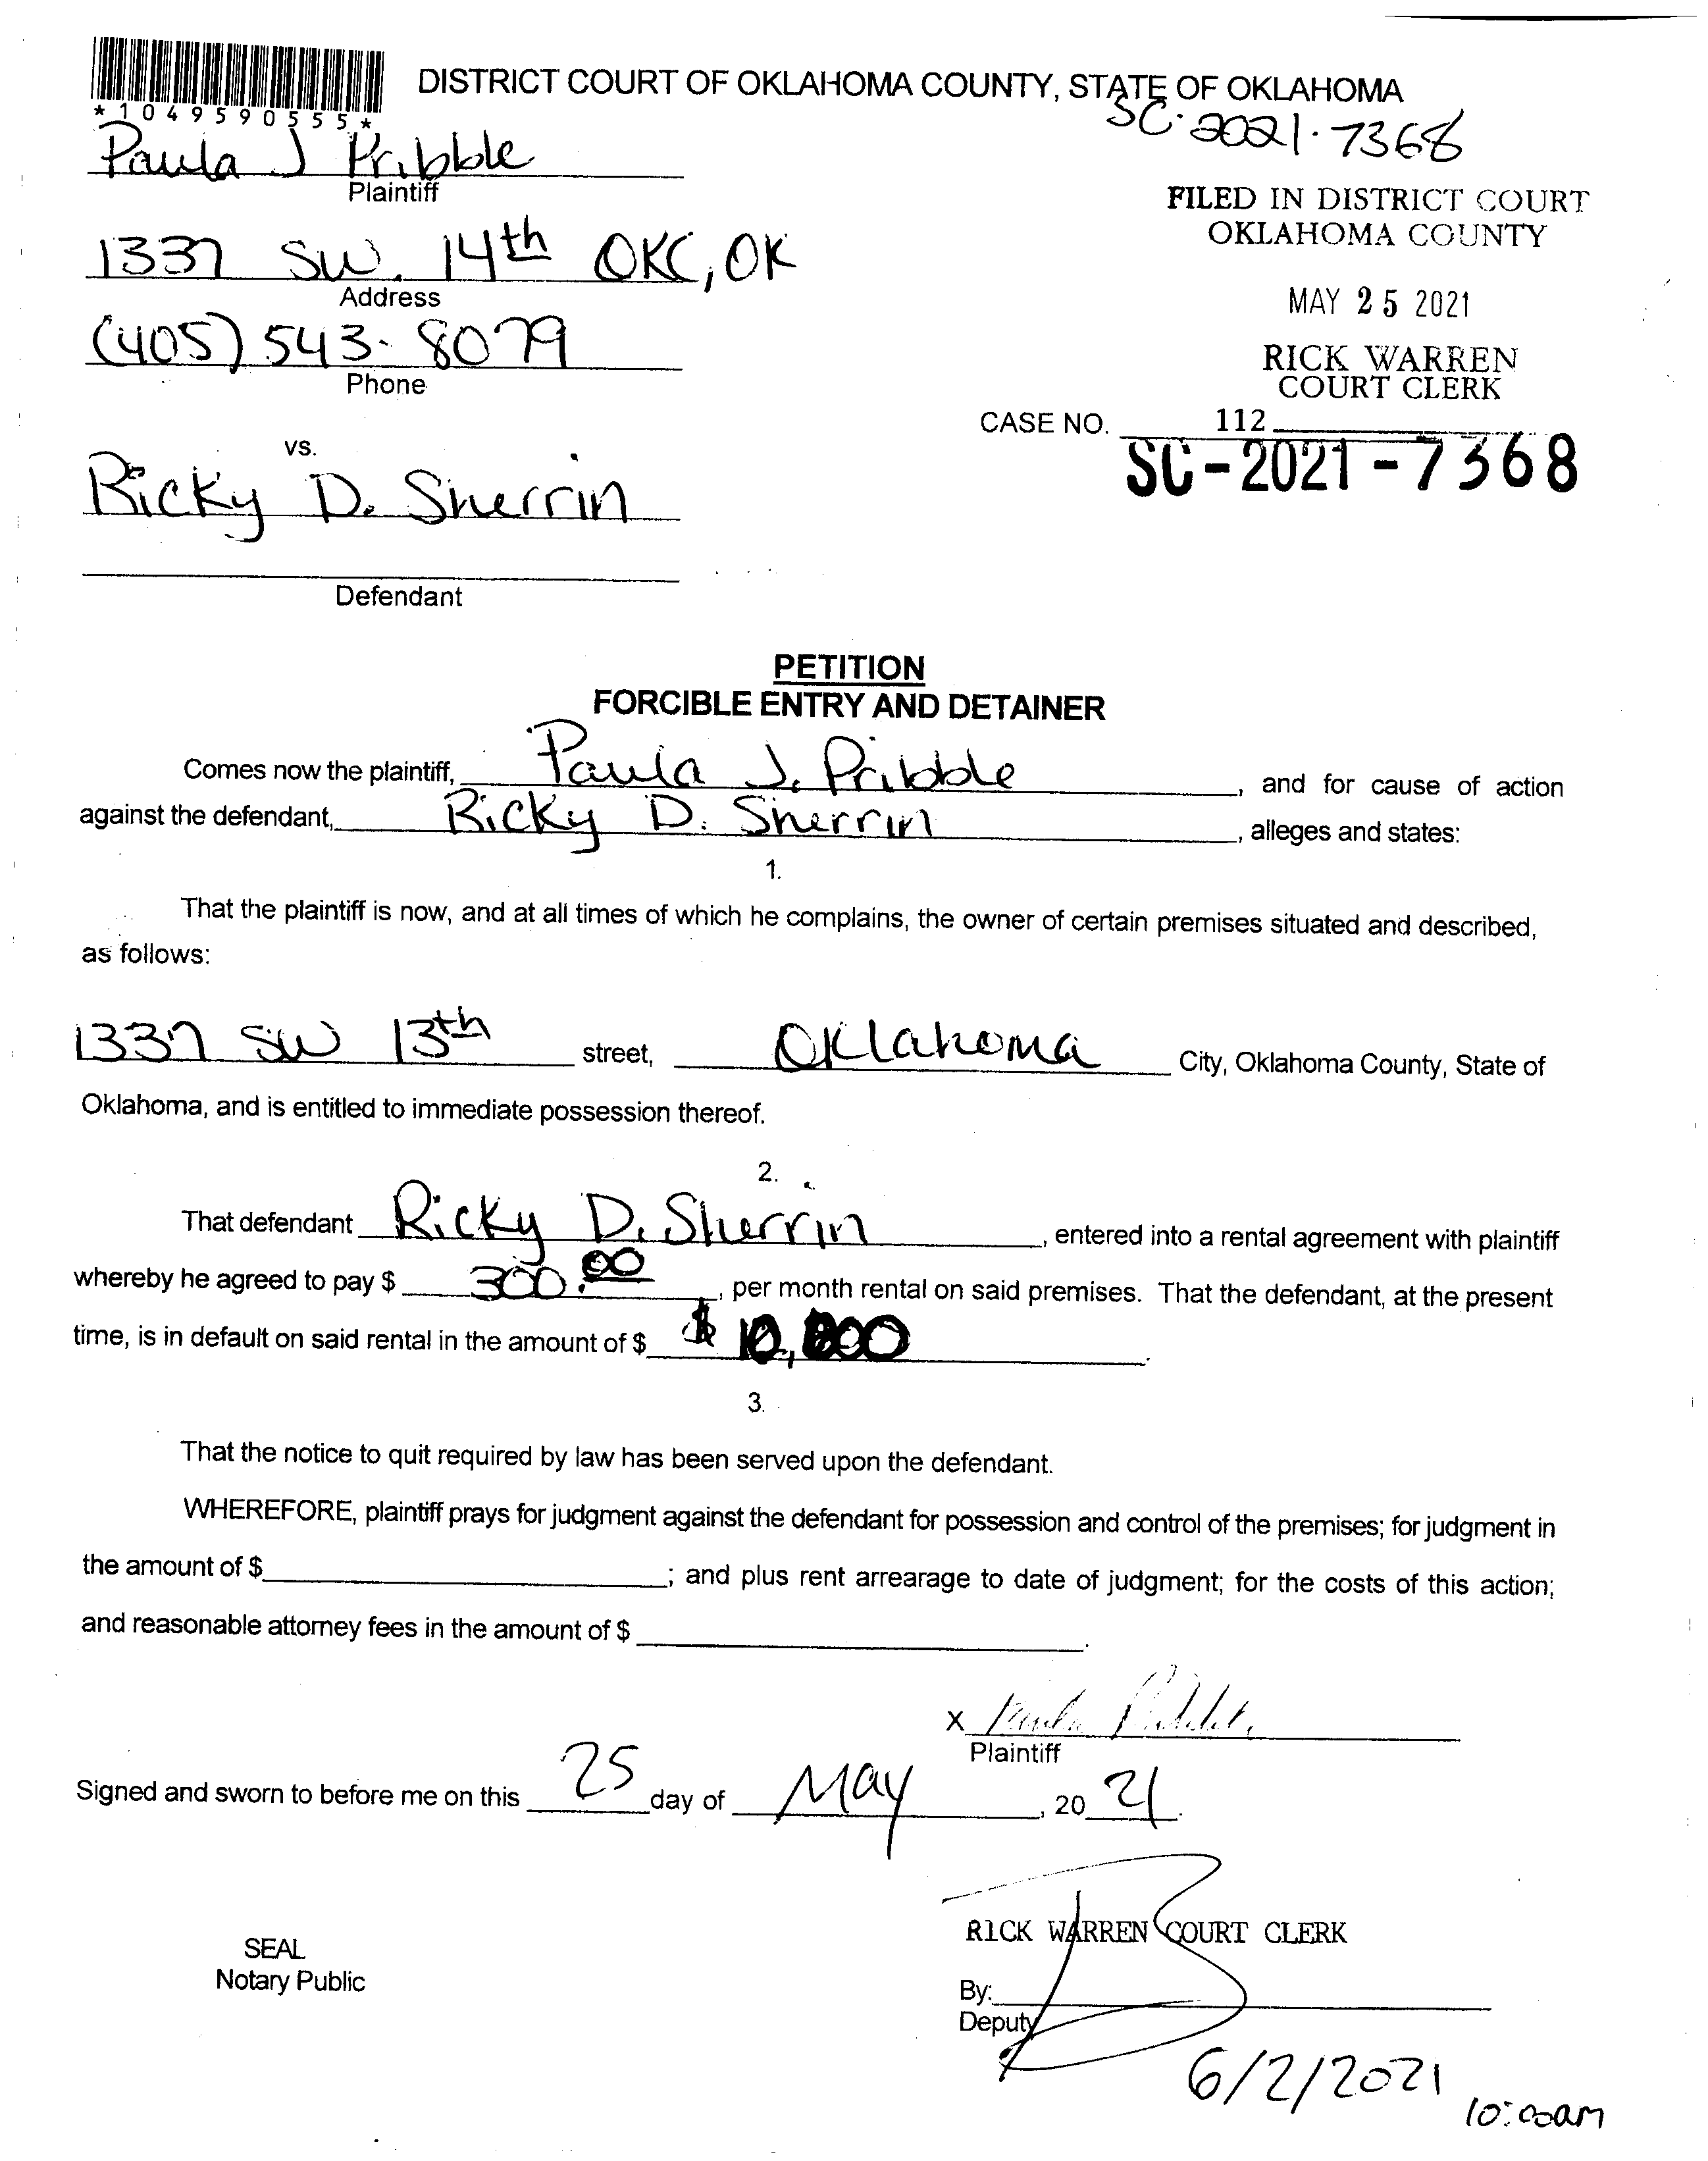 DISTRICT COURT OF OKLAHOMA COUNTY, STATE OF OKLAHOMA
*1049590555*
SC-2021-7368
Paula J Pribble
Plaintiff
FILED IN DISTRICT COURT
OKLAHOMA COUNTY
1337 SW. 14th OKC, OK
Address
MAY 25 2021
(405) 543-8079
Phone
RICK WARREN
COURT CLERK
CASE NO. 112
SC-2021-7368
vs.
Ricky D. Sherrin
Defendant
PETITION
FORCIBLE ENTRY AND DETAINER
Comes now the plaintiff, Paula J. Pribble, and for cause of action
against the defendant, Ricky D. Sherrin, alleges and states:
1.
That the plaintiff is now, and at all times of which he complains, the owner of certain premises situated and described,
as follows:
1337 SW 13th street, Oklahoma City, Oklahoma County, State of
Oklahoma, and is entitled to immediate possession thereof.
2.
That defendant Ricky D. Sherrin, entered into a rental agreement with plaintiff
whereby he agreed to pay $ 300.00, per month rental on said premises. That the defendant, at the present
time, is in default on said rental in the amount of $ $
3.
That the notice to quit required by law has been served upon the defendant.
WHEREFORE, plaintiff prays for judgment against the defendant for possession and control of the premises; for judgment in
the amount of $ ; and plus rent arrearage to date of judgment; for the costs of this action;
and reasonable attorney fees in the amount of $ .
X Paula Pribble
Plaintiff
Signed and sworn to before me on this 25 day of May, 20 21.
RICK WARREN COURT CLERK
SEAL
Notary Public
By:
Deputy
6/2/2021
10:00am